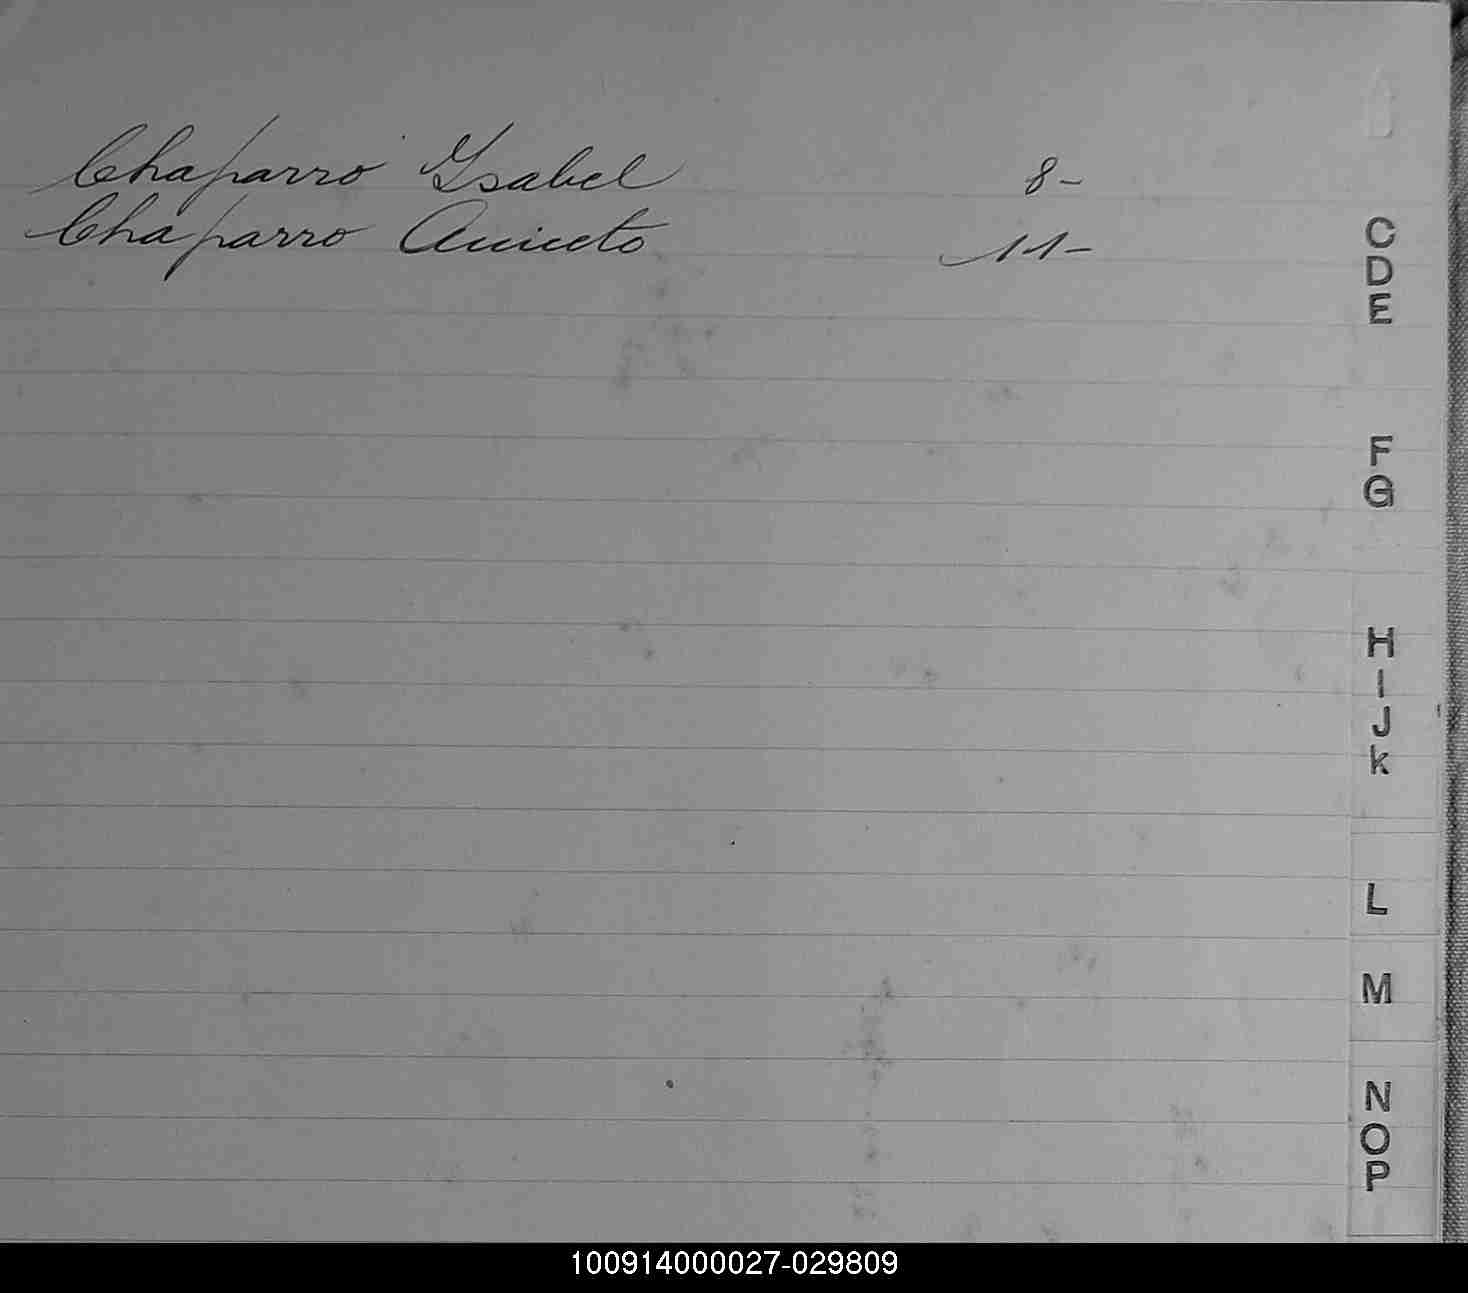 Chaparro Ysabel 8-
Chaparro Aniceto 11-
C
D
E
F
G
H
I
J
K
L
M
N
O
P
100914000027-029809